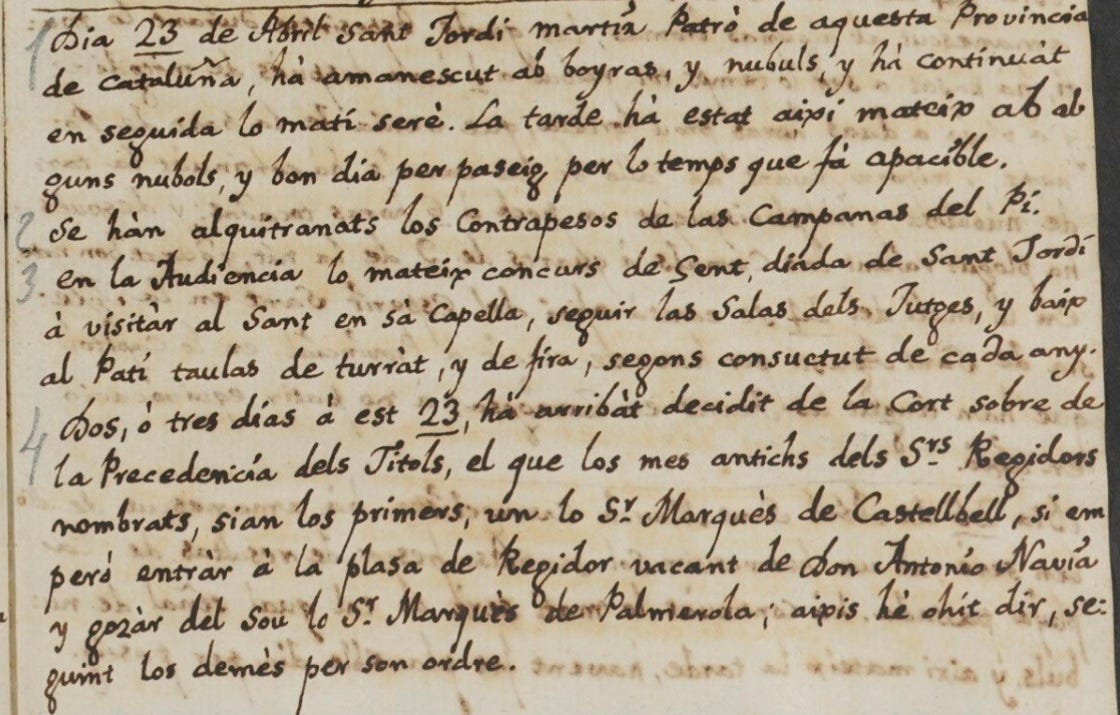 1 Dia 23 de Abril Sant Jordi martir Patrò de aquesta Provincia
de Cataluña, hà amanescut ab boyras, y nubuls, y hà continuàt
en seguida lo matí serè. La tarde hà estat aixi mateix ab al
guns nubols, y bon dia per paseig, per lo temps que fà apacible.
2 Se hàn alquitranats los Contrapesos de las Campanas del Pi.
3 en la Audiencia lo mateix concurs de Gent, diada de Sant Jordi
à visitàr al Sant en sà Capella, seguir las Salas dels Jutges, y baix
al Pati taulas de turràt, y de fira, segons consuctut de cada any.
4 Dos, ò tres dias à est 23, hà arribàt decidit de la Cort sobre de
la Precedencia dels Titols, el que los mes antichs dels S.rs Regidors
nombrats, sian los primers, un lo S.r Marquès de Castellbell, si em
però entràr à là plasa de Regidor vacant de Don Antonio Navia
y gozàr del Sou lo S.r Marquès de Palmerola; aixis hè ohit dir, se:
guint los demès per son ordre.